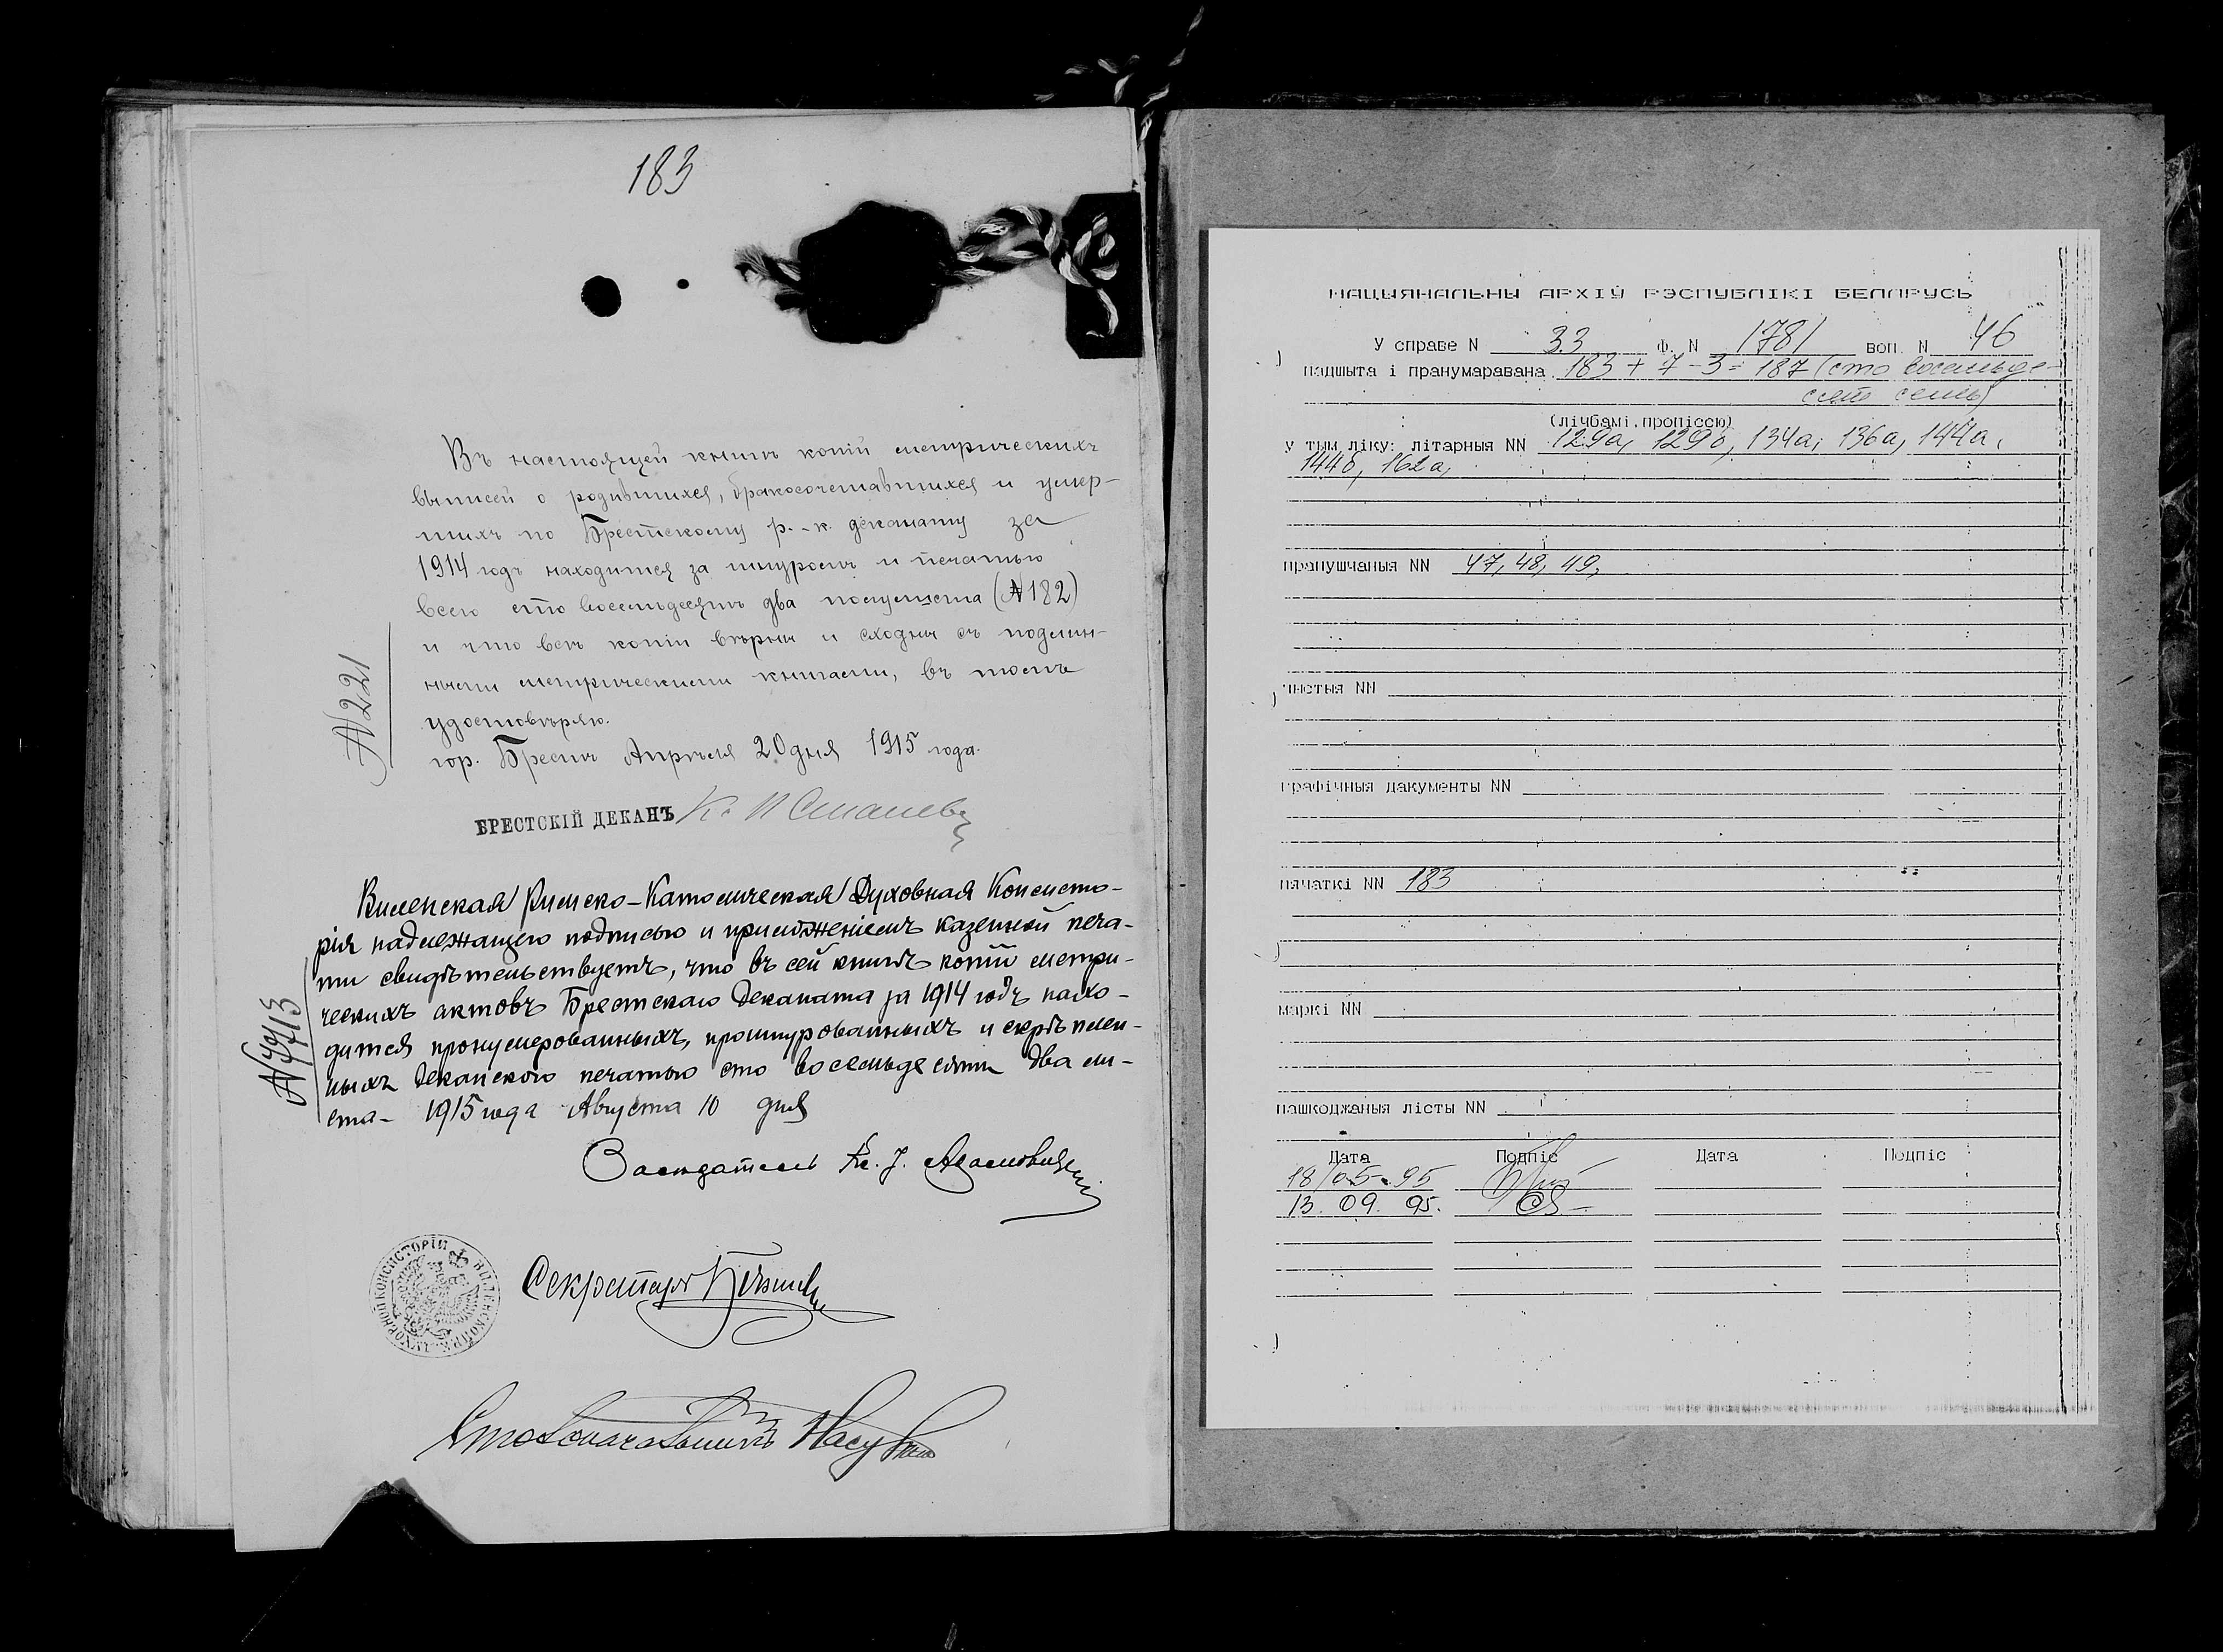 183
Въ настоящей книгѣ копій метрическихъ
выписей о родившихся, бракосочетавшихся и умер-
шихъ по Брестскому р.-к. деканату за
1914 годъ находится за шнуромъ и печатью
всего сто восемьдесятъ два полулиста (№182)
и что всѣ копіи вѣрны и сходны съ подлин-
ными метрическими книгами, въ томъ
удостовѣряю.
гор. Брестъ Апрѣля 20 дня 1915 года.
№221
БРЕСТСКІЙ ДЕКАНЪ Кс
Виленская Римско-Католическая Духовная Консисто-
рія надлежащею подписью и приложеніемъ казенной печа-
ти свидѣтельствуетъ, что въ сей книгѣ копій метри-
ческихъ актовъ Брестскаго Деканата за 1914 годъ нахо-
дится пронумерованныхъ, прошнурованныхъ и скрѣплен-
ныхъ деканскою печатью сто восемьдесятъ два ли-
ста- 1915 года Августа 10 дня
№7713
Засѣдатель Кс. J.
ВИЛЕНСКОЙ Р.К. ДУХОВНОЙ КОНСИСТОРІИ
Секретарь
Столоначальникъ
НАЦЫЯНАЛЬНЫ АРХІЎ РЭСПУБЛІКІ БЕЛАРУСЬ
У справе N 33 Ф. N 1781 воп. N 46
падшыта і пранумаравана 183 + 7 - 3 = 187 (сто восемьде-
сят семь)
(лічбамі, пропіссю)
у тым ліку: літарныя NN 129а, 129б, 134а, 136а, 144а,
144б, 162а,
прапушчаныя NN 47, 48, 49,
чыстыя NN
графічныя дакументы NN
пячаткі NN 183
маркі NN
пашкоджаныя лісты NN
Дата Подпіс Дата Подпіс
18/05-95
13.09.95.